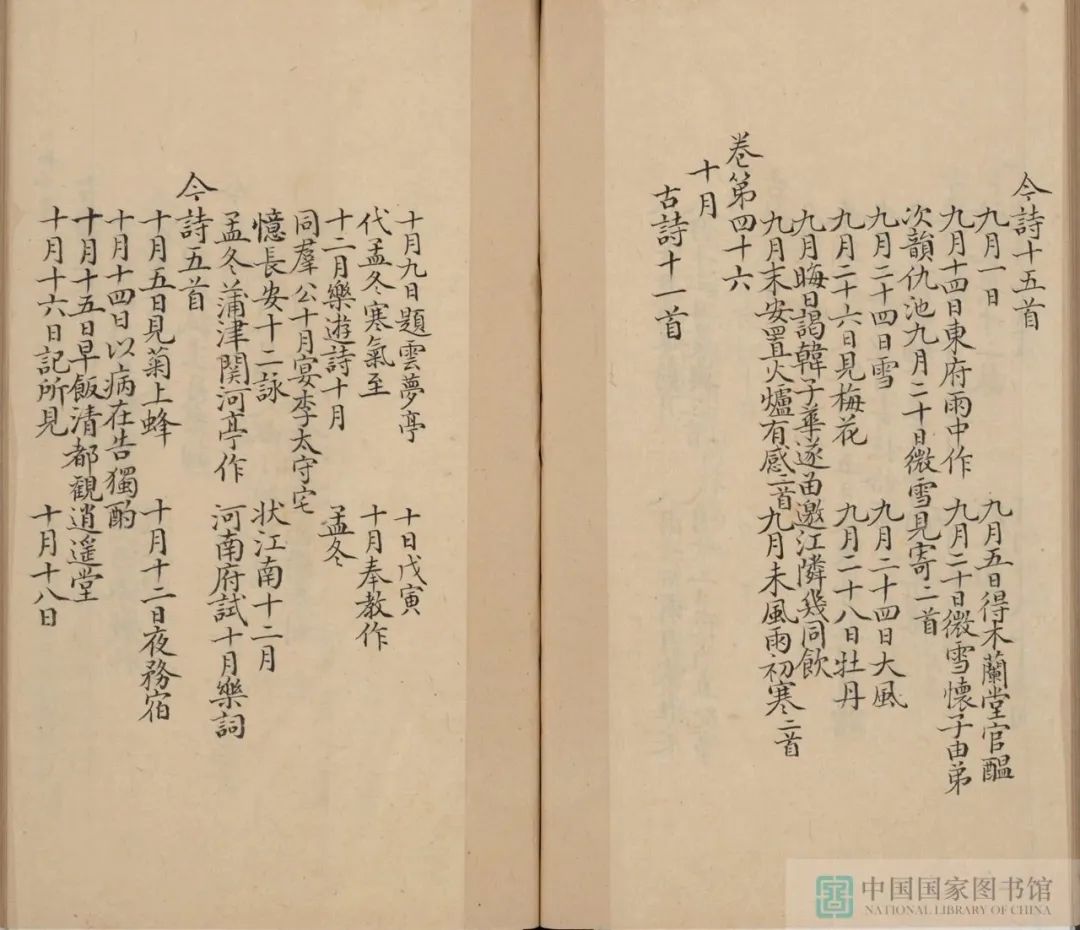 今詩十五首
九月一日 九月五日得木蘭堂官醖
九月十四日東府雨中作 九月二十日微雪懷子由弟
次韻仇池九月二十日微雪見寄二首
九月二十四日雪 九月二十四日大風
九月二十六日見梅花 九月二十八日牡丹
九月晦日謁韓子華遂留邀江隣幾同飲
九月末安置火爐有感二首 九月末風雨初寒二首
卷第四十六
十月
古詩十一首
十月九日題雲夢亭 十日戊寅
代孟冬寒氣至 十月奉教作
十二月樂遊詩十月 孟冬
同羣公十月宴李太守宅
憶長安十二詠 狀江南十二月
孟冬蒲津関河亭作 河南府試十月樂詞
今詩五首
十月五日見菊上蜂 十月十二日夜務宿
十月十四日以病在告獨酌
十月十五日早飯清都觀逍遥堂
十月十六日記所見 十月十八日
中国国家图书馆
NATIONAL LIBRARY OF CHINA